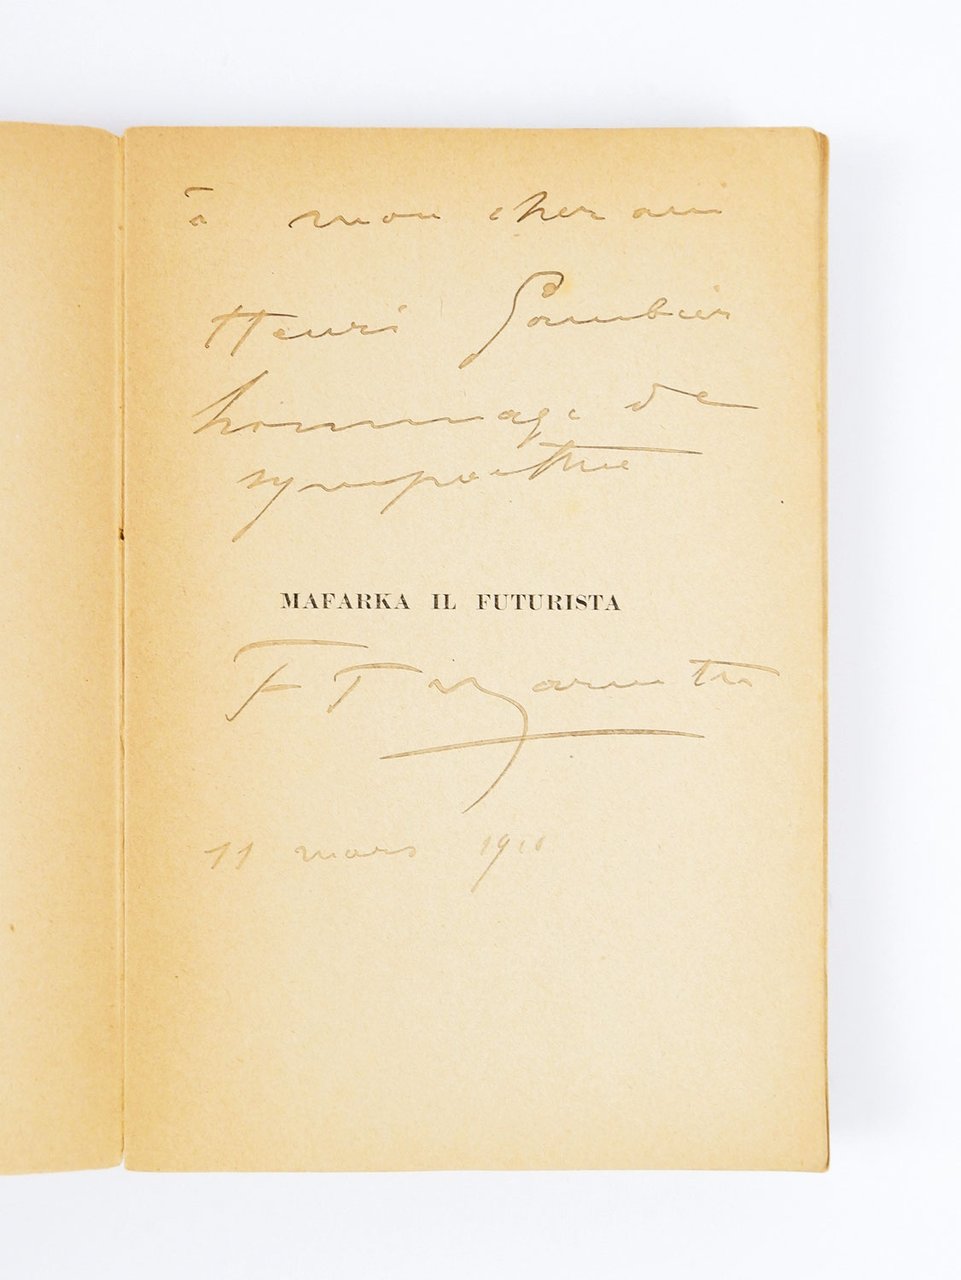 à mon cher ami
Henri
hommage de
sympathie
MAFARKA IL FUTURISTA
F T Marinetti
11 mars